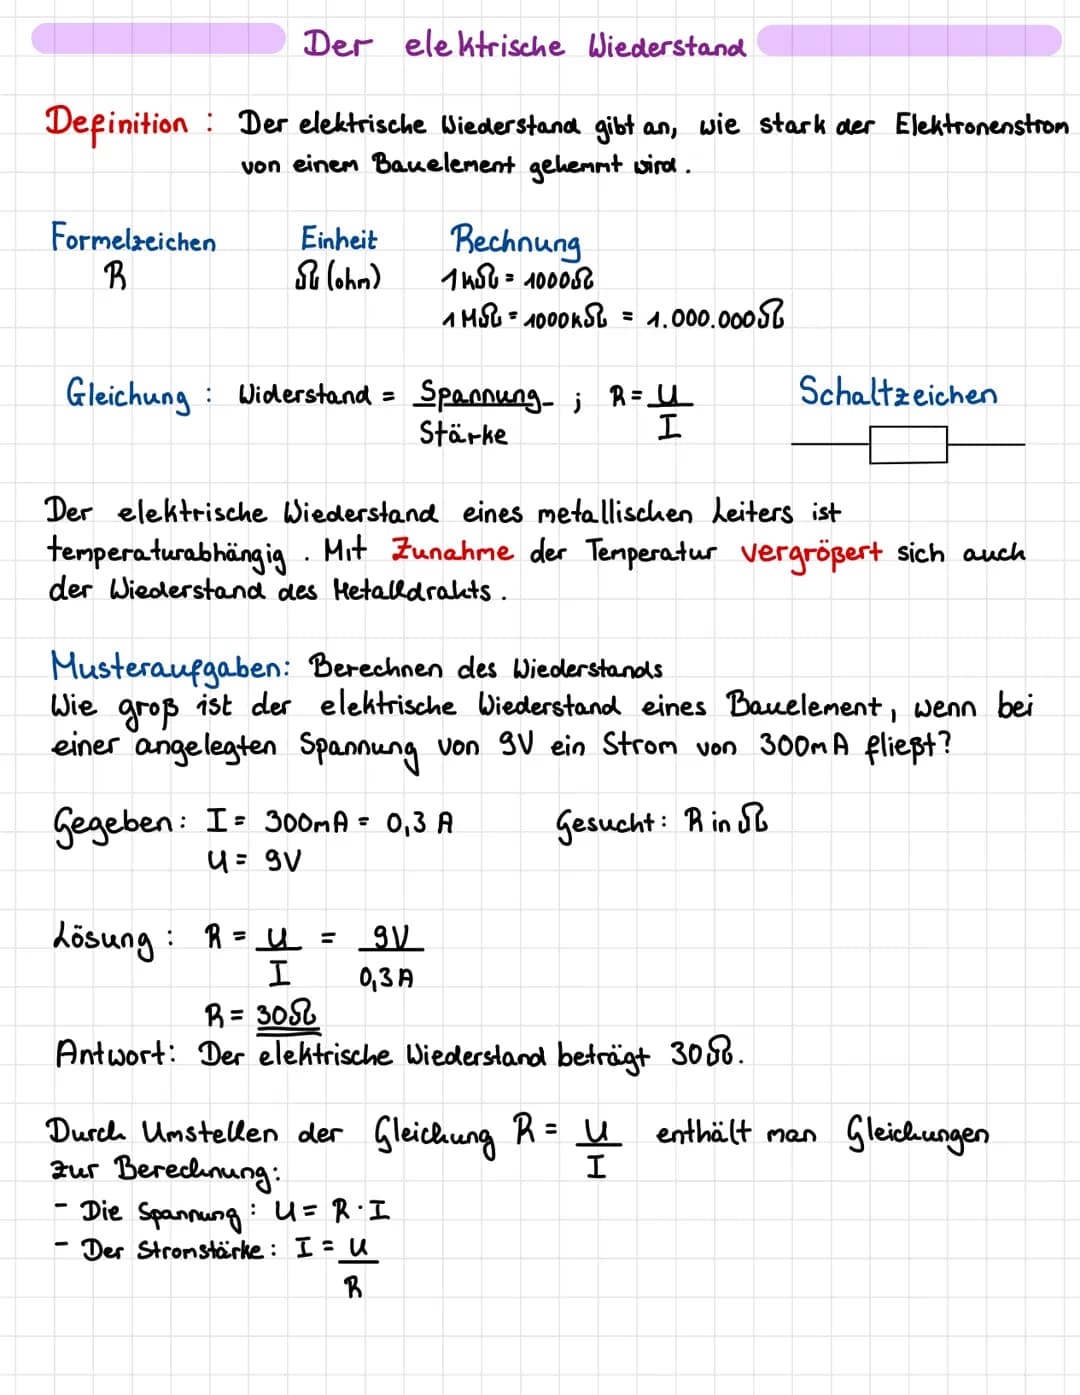 Der elektrische Wiederstand
Definition : Der elektrische Wiederstand gibt an, wie stark der Elektronenstrom
von einem Bauelement gehemmt wird.
Formelzeichen Einheit Rechnung
R Ω (ohm) 1kΩ = 1000Ω
1MΩ = 1000kΩ = 1.000.000Ω
Gleichung : Widerstand = Spannung ; R = U Schaltzeichen
Stärke I
Der elektrische Wiederstand eines metallischen Leiters ist
temperaturabhängig . Mit Zunahme der Temperatur vergrößert sich auch
der Wiederstand des Metalldrahts .
Musteraufgaben: Berechnen des Wiederstands
Wie groß ist der elektrische Wiederstand eines Bauelement, wenn bei
einer angelegten Spannung von 9V ein Strom von 300mA fließt?
Gegeben: I = 300mA = 0,3 A Gesucht: R in Ω
U = 9V
Lösung : R = U = 9V
I 0,3A
R = 30Ω
Antwort: Der elektrische Wiederstand beträgt 30Ω.
Durch Umstellen der Gleichung R = U enthält man Gleichungen
I
zur Berechnung:
- Die Spannung : U = R · I
- Der Stromstärke : I = U
R